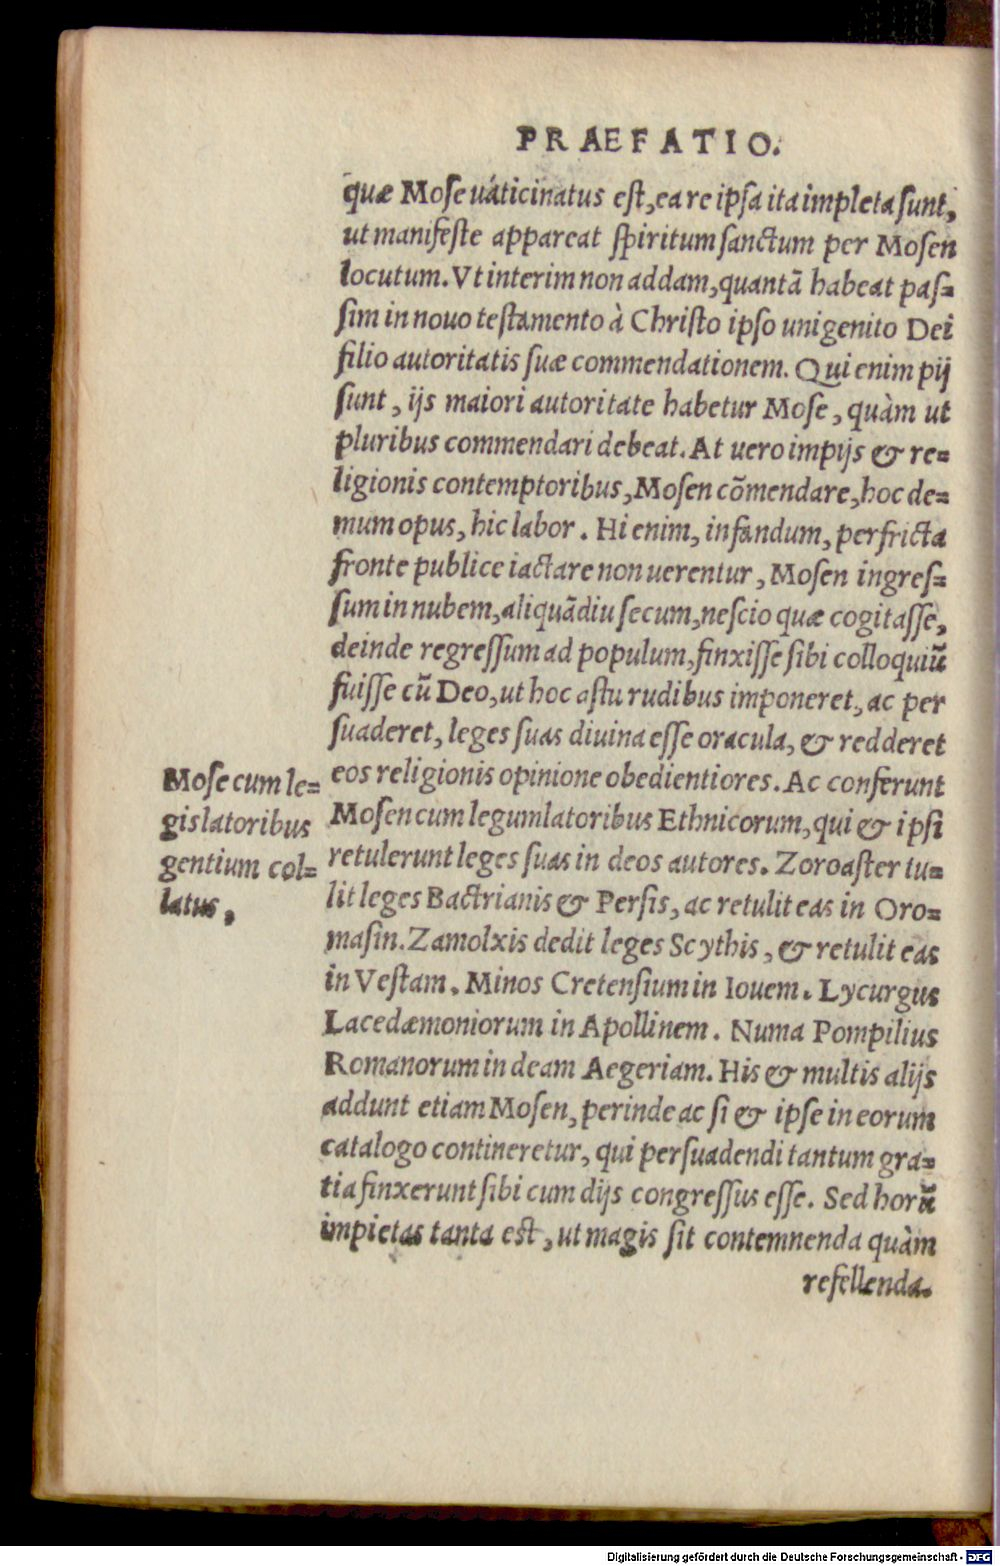 PRAEFATIO.
quæ Mose uáticinatus est, ea re ipsa ita impleta sunt,
ut manifeste appareat spiritum sanctum per Mosen
locutum. Vt interim non addam, quantã habeat pas=
sim in nouo testamento à Christo ipso unigenito Dei
filio autoritatis suæ commendationem. Qui enim pij
sunt, ijs maiori autoritate habetur Mose, quàm ut
pluribus commendari debeat. At uero impijs & re=
ligionis contemptoribus, Mosen cõmendare, hoc de=
mum opus, hic labor. Hi enim, infandum, perfricta
fronte publice iactare non uerentur, Mosen ingres=
sum in nubem, aliquãdiu secum, nescio quæ cogitasse,
deinde regressum ad populum, finxisse sibi colloquiũ
fuisse cũ Deo, ut hoc astu rudibus imponeret, ac per
suaderet, leges suas diuina esse oracula, & redderet
eos religionis opinione obedientiores. Ac conferunt
Mosen cum legumlatoribus Ethnicorum, qui & ipsi
retulerunt leges suas in deos autores. Zoroaster tu=
lit leges Bactrianis & Persis, ac retulit eas in Oro=
masin. Zamolxis dedit leges Scythis, & retulit eas
in Vestam. Minos Cretensium in Iouem. Lycurgus
Lacedæmoniorum in Apollinem. Numa Pompilius
Romanorum in deam Aegeriam. His & multis alijs
addunt etiam Mosen, perinde ac si & ipse in eorum
catalogo contineretur, qui persuadendi tantum gra=
tia finxerunt sibi cum dijs congressus esse. Sed horũ
impietas tanta est, ut magis sit contemnenda quàm
refellenda.
Mose cum le=
gislatoribus
gentium col=
latus.
Digitalisierung gefördert durch die Deutsche Forschungsgemeinschaft - DFG